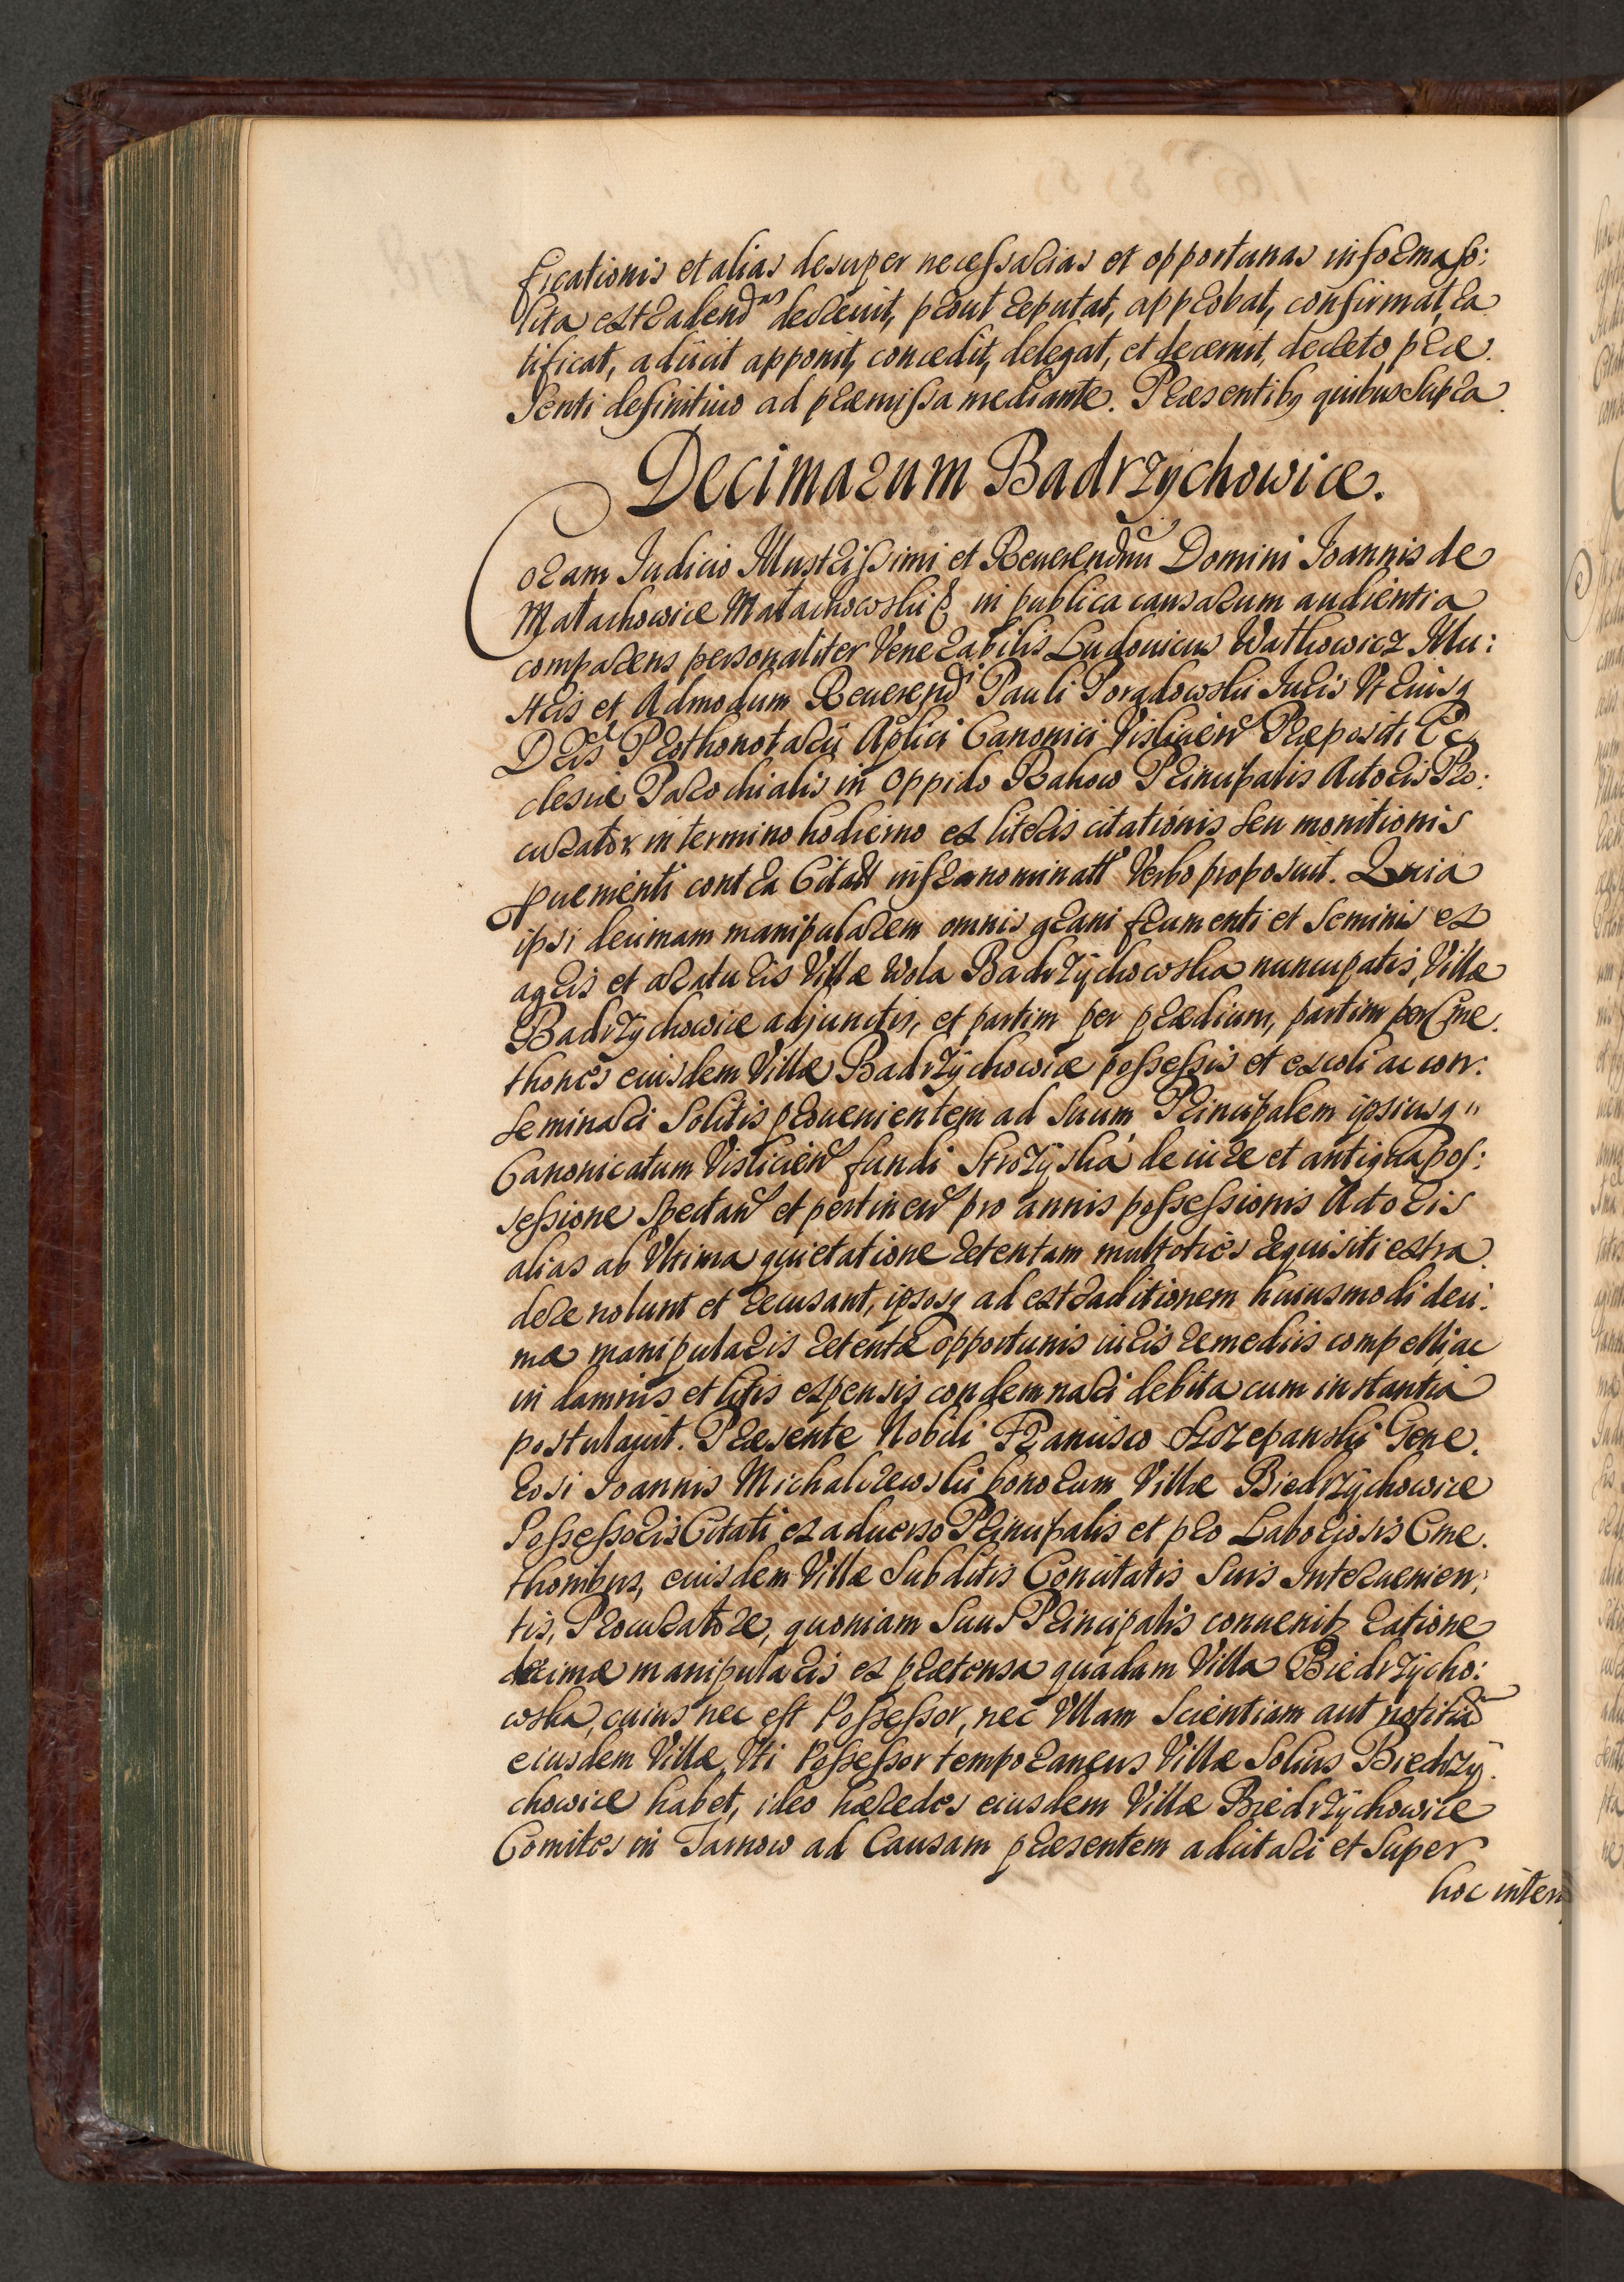 ficationis et alias desuper necessarias et opportunas in forma so:
lita extradend as decreuit, prout reputat, approbat, confirmat, ra
tificat, adiicit apponit, concedit, delegat, et decernit, decreto præ.
senti definitiuo ad præmissa mediante. Præsentibq quibus supra.
Decimarum Badrzychowice.
Coram Judicio Illustrissimi et Reuerendmi Domini Joannis de
Małachowice Małachowski in publica causarum audientia
comparens personaliter Venerabilis Ludouicus Wathowicz Illu:
stris et Admodum Reuerendi Pauli Poradowski Juris Vtriusq
Dris Prothonotarii Aplici Canonici Vislicien Præpositi Ec
clesiæ Parochialis in Oppido Rakow Principalis Actoris Pro:
curator in termino hodierno ex literis citationis seu monitionis
prueenienti contra Citatt infranominatt Verbo proposuit. Quia
ipsi decimam manipularem omnis grani frumenti et Seminis ex
agris et araturis Villæ Wola Badrzychowska nuncupatis, Villæ
Badrzychowice adjunctis, et partim per prædium, partim per Cme.
thones eiusdem Villæ Badrzychowice possessis et excoli ac con:
seminari Solitis prouenientem ad Suum Principalem ipsiusq"
Canonicatum Vislicien fundi Strożyska de iure et antiqua pos:
sessione Spectan et pertinen pro annis possessionis Actoris
alias ab Vltima quietatione retentam multoties requisiti extra.
dere nolunt et recusant, ipsosq ad extraditionem huiusmodi deci.
mæ manipularis retentæ opportunis iuris remediis compelli, ac
in damnis et litis expensis condemnari debita cum instantia
postulauit. Præsente Nobili Francisco Szczepanski Gene.
rosi Joannis Michalczewski bonorum Villæ Biedrzychowice
Possessoris Citati ex aduerso Principalis et pro Laboriosis Cme.
thonibus, eiusdem Villæ Subditis Concitatis Suis Interuenien:
tis, Procuratore, quoniam Suus Principalis conuenitr ratione
decimæ manipularis ex prætensa quadam Villa Biedrzycho:
wska, cuius nec est Possessor, nec Vllam Scientiam aut notitia
eiusdem Villæ, Vti Possessor temporaneus Villæ Solius Biedrzy.
chowice habet, ideo hæredes eiusdem Villæ Biedrzychowice
Comites in Tarnow ad Causam præsentem adcitari et Super
hoc inter